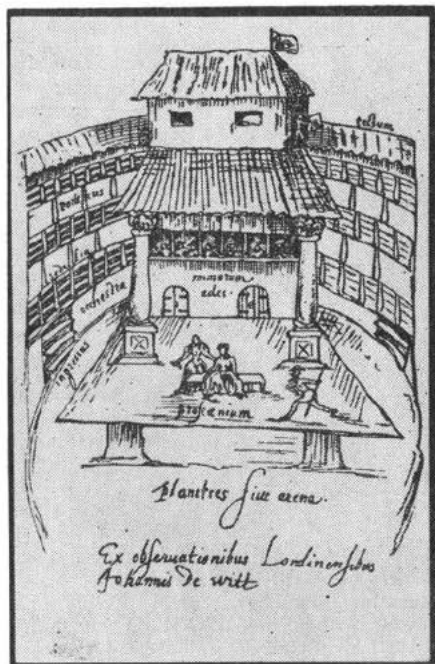 tectum
porticus
sedilia
orchestra
ingressus
mimorum
ædes.
proscænium
planities sive arena.
Ex observationibus Londinensibus
Johannis de witt